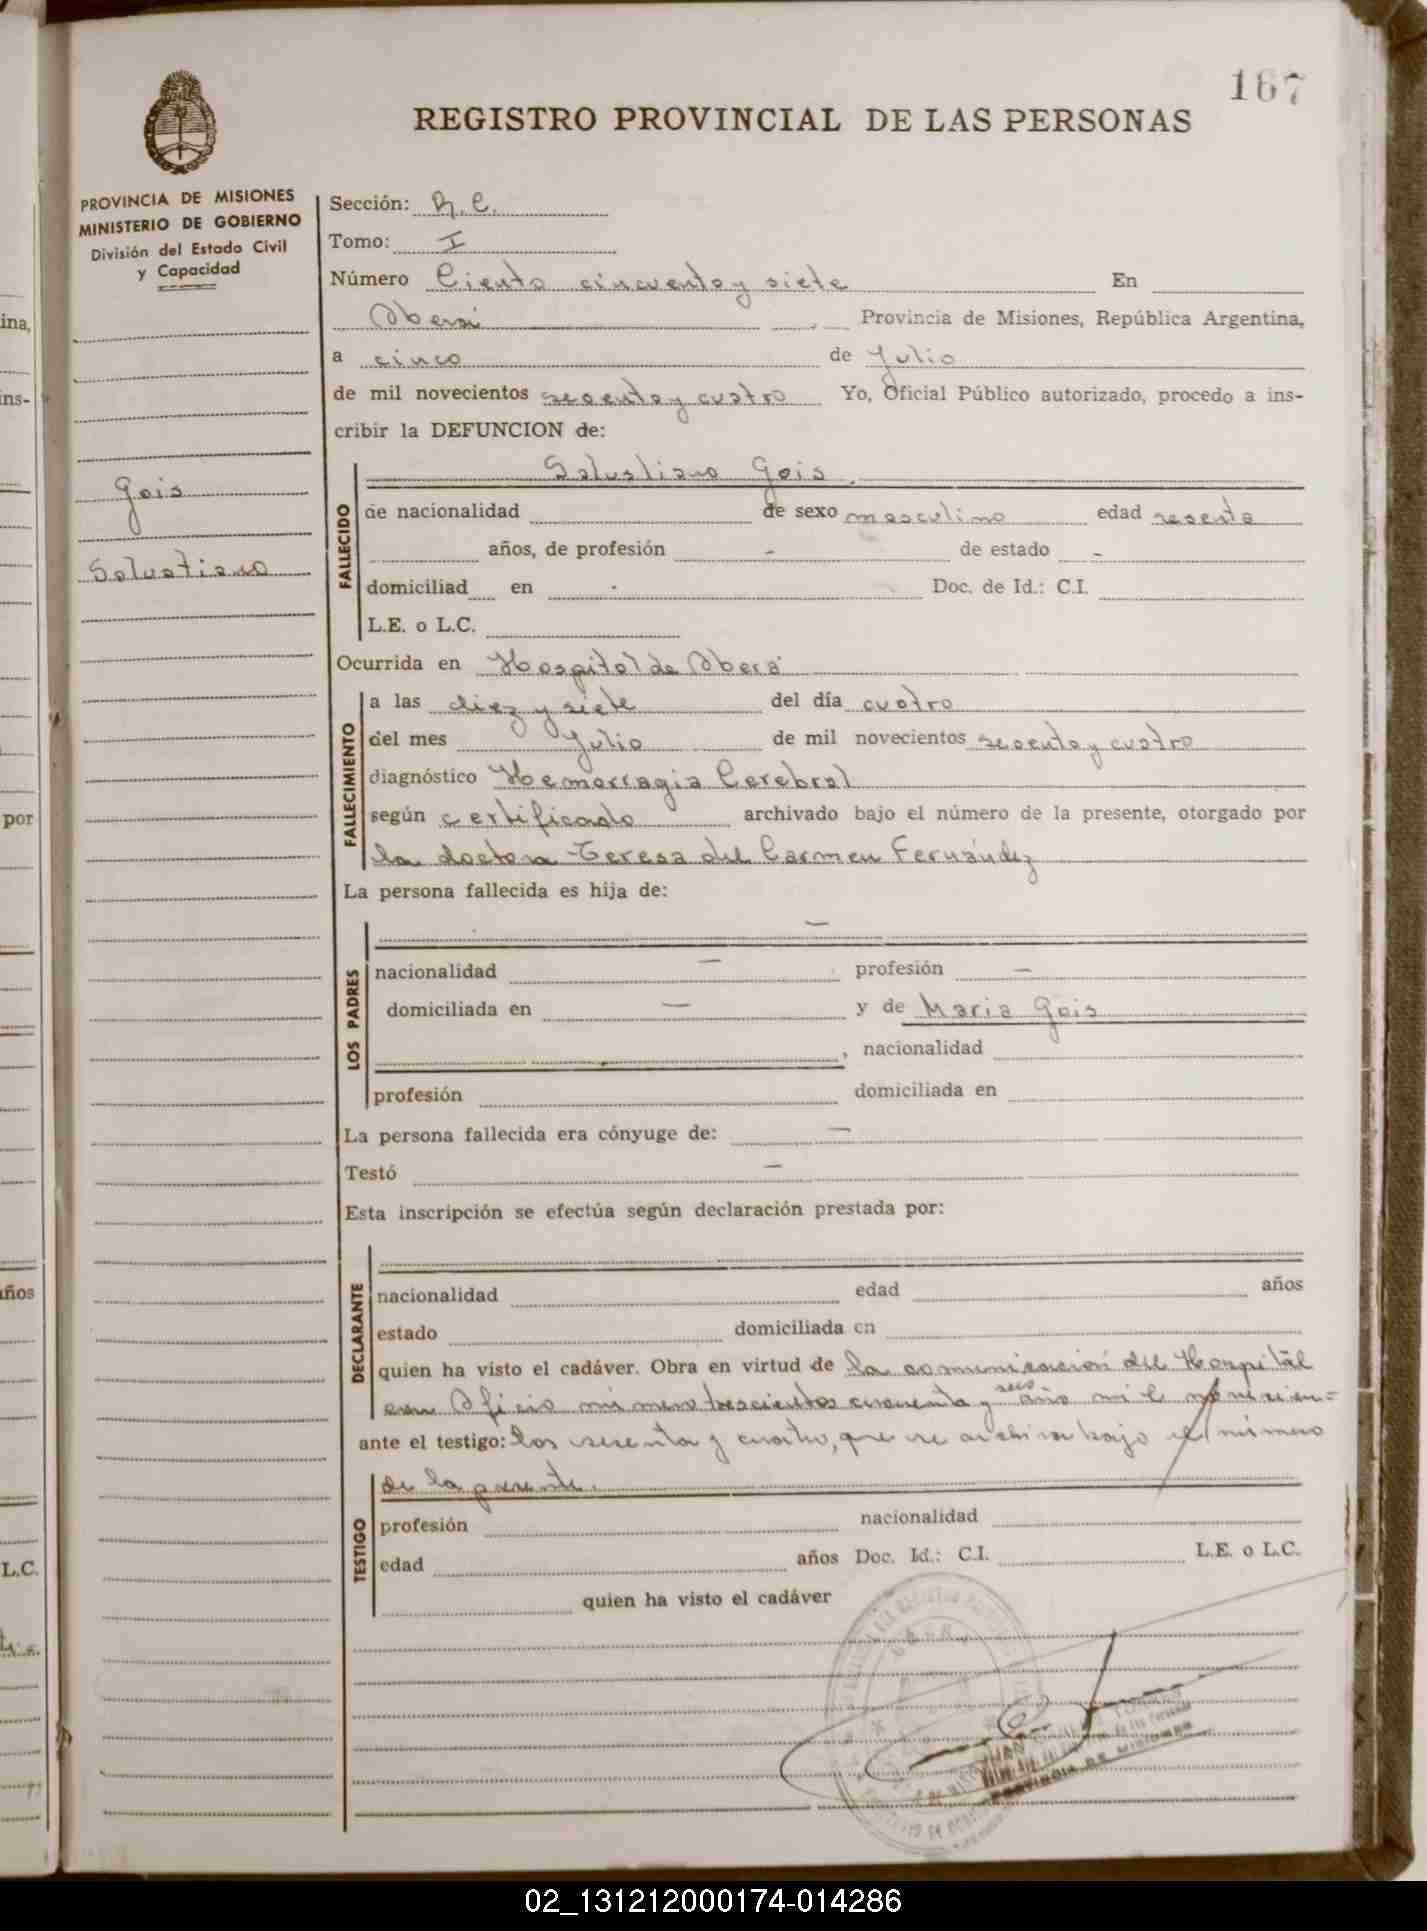 167
REGISTRO PROVINCIAL DE LAS PERSONAS
PROVINCIA DE MISIONES
MINISTERIO DE GOBIERNO
División del Estado Civil
y Capacidad
Gois
Salustiano
Sección: R. C.
Tomo: I
Número Ciento cincuenta y siete En
Oberá Provincia de Misiones, República Argentina,
a cinco de Julio
de mil novecientos sesenta y cuatro Yo, Oficial Público autorizado, procedo a ins-
cribir la DEFUNCION de:
Salustiano Gois.
FALLECIDO
de nacionalidad de sexo masculino edad sesenta
años, de profesión - de estado -
domiciliad en - Doc. de Id.: C.I.
L.E. o L.C.
Ocurrida en Hospital de Oberá
FALLECIMIENTO
a las diez y siete del día cuatro
del mes Julio de mil novecientos sesenta y cuatro
diagnóstico Hemorragia Cerebral
según certificado archivado bajo el número de la presente, otorgado por
la doctora Teresa del Carmen Fernández
La persona fallecida es hija de:
LOS PADRES
—
nacionalidad — profesión —
domiciliada en — y de Maria Gois
, nacionalidad
profesión domiciliada en
La persona fallecida era cónyuge de: —
Testó —
Esta inscripción se efectúa según declaración prestada por:
DECLARANTE
nacionalidad edad años
estado domiciliada en
quien ha visto el cadáver. Obra en virtud de la comunicación del Hospital
en Oficio número trescientos cincuenta y seis año mil novecien=
ante el testigo: tos sesenta y cuatro, que se archiva bajo el número
de la presente.
TESTIGO
profesión nacionalidad
edad años Doc. Id.: C.I. L.E. o L.C.
quien ha visto el cadáver
PROVINCIA DE MISIONES
ina,
ins-
por
años
L.C.
02_131212000174-014286